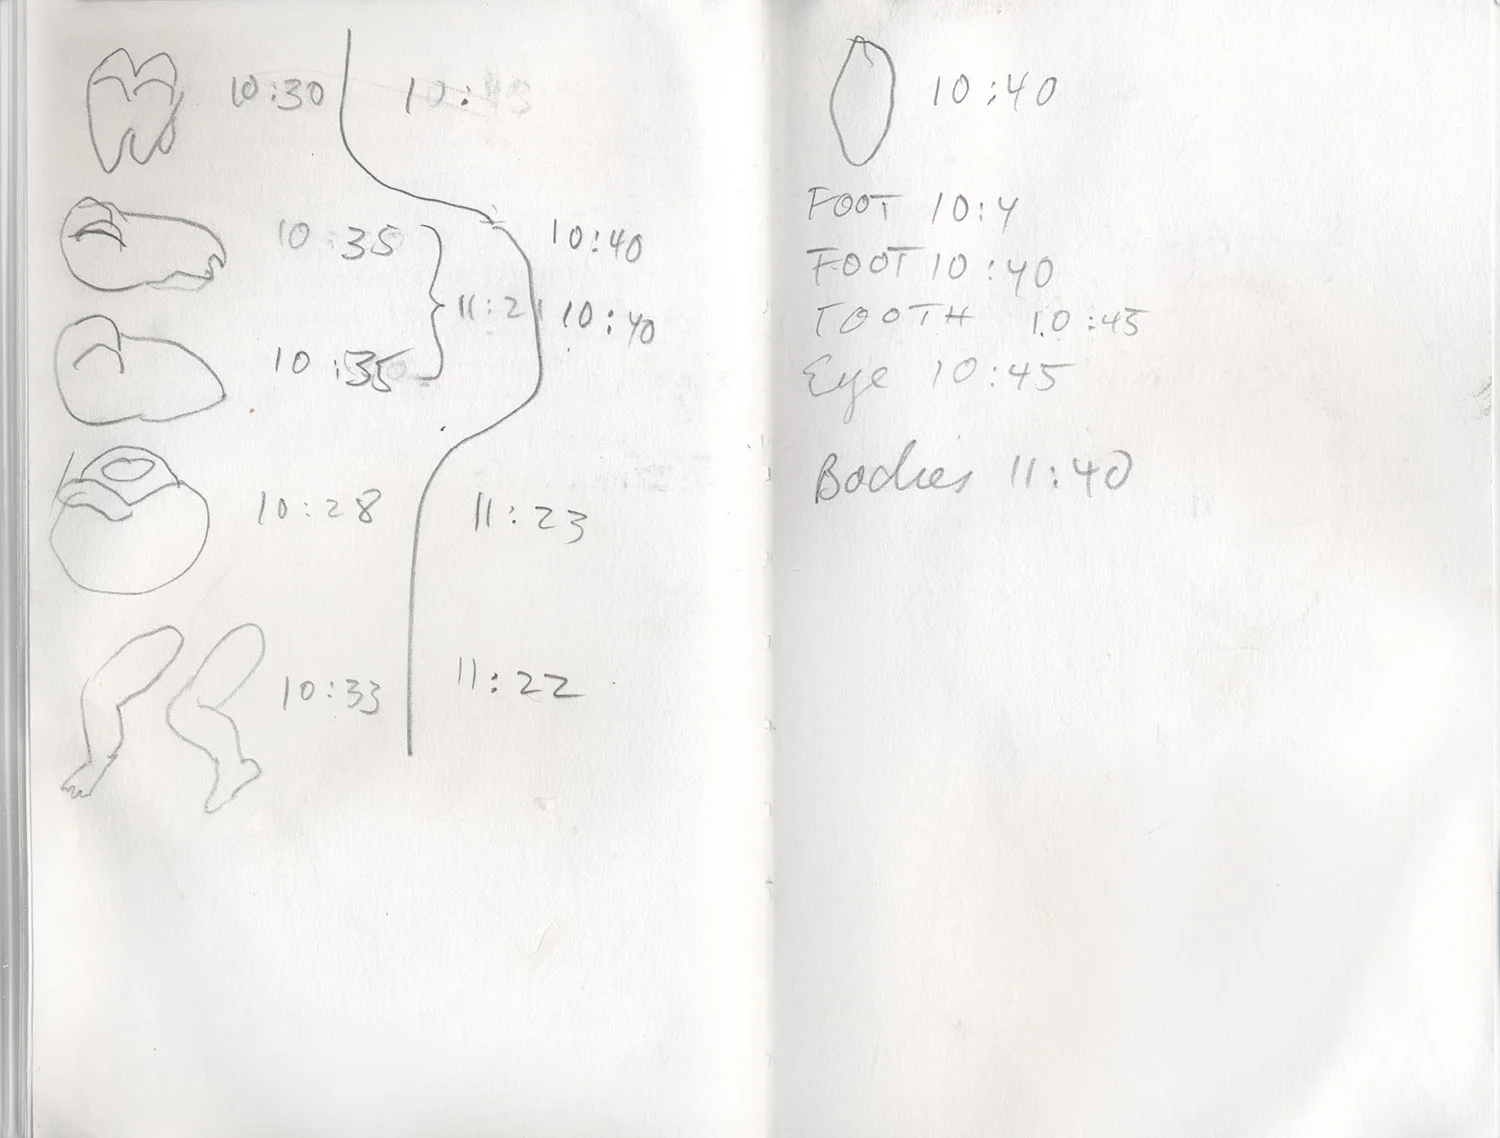 10:30 10:
10:35 10:40
11:2 10:40
10:35
10:28 11:23
10:33 11:22
10:40
FOOT 10:4
FOOT 10:40
TOOTH 10:45
Eye 10:45
Bodies 11:40